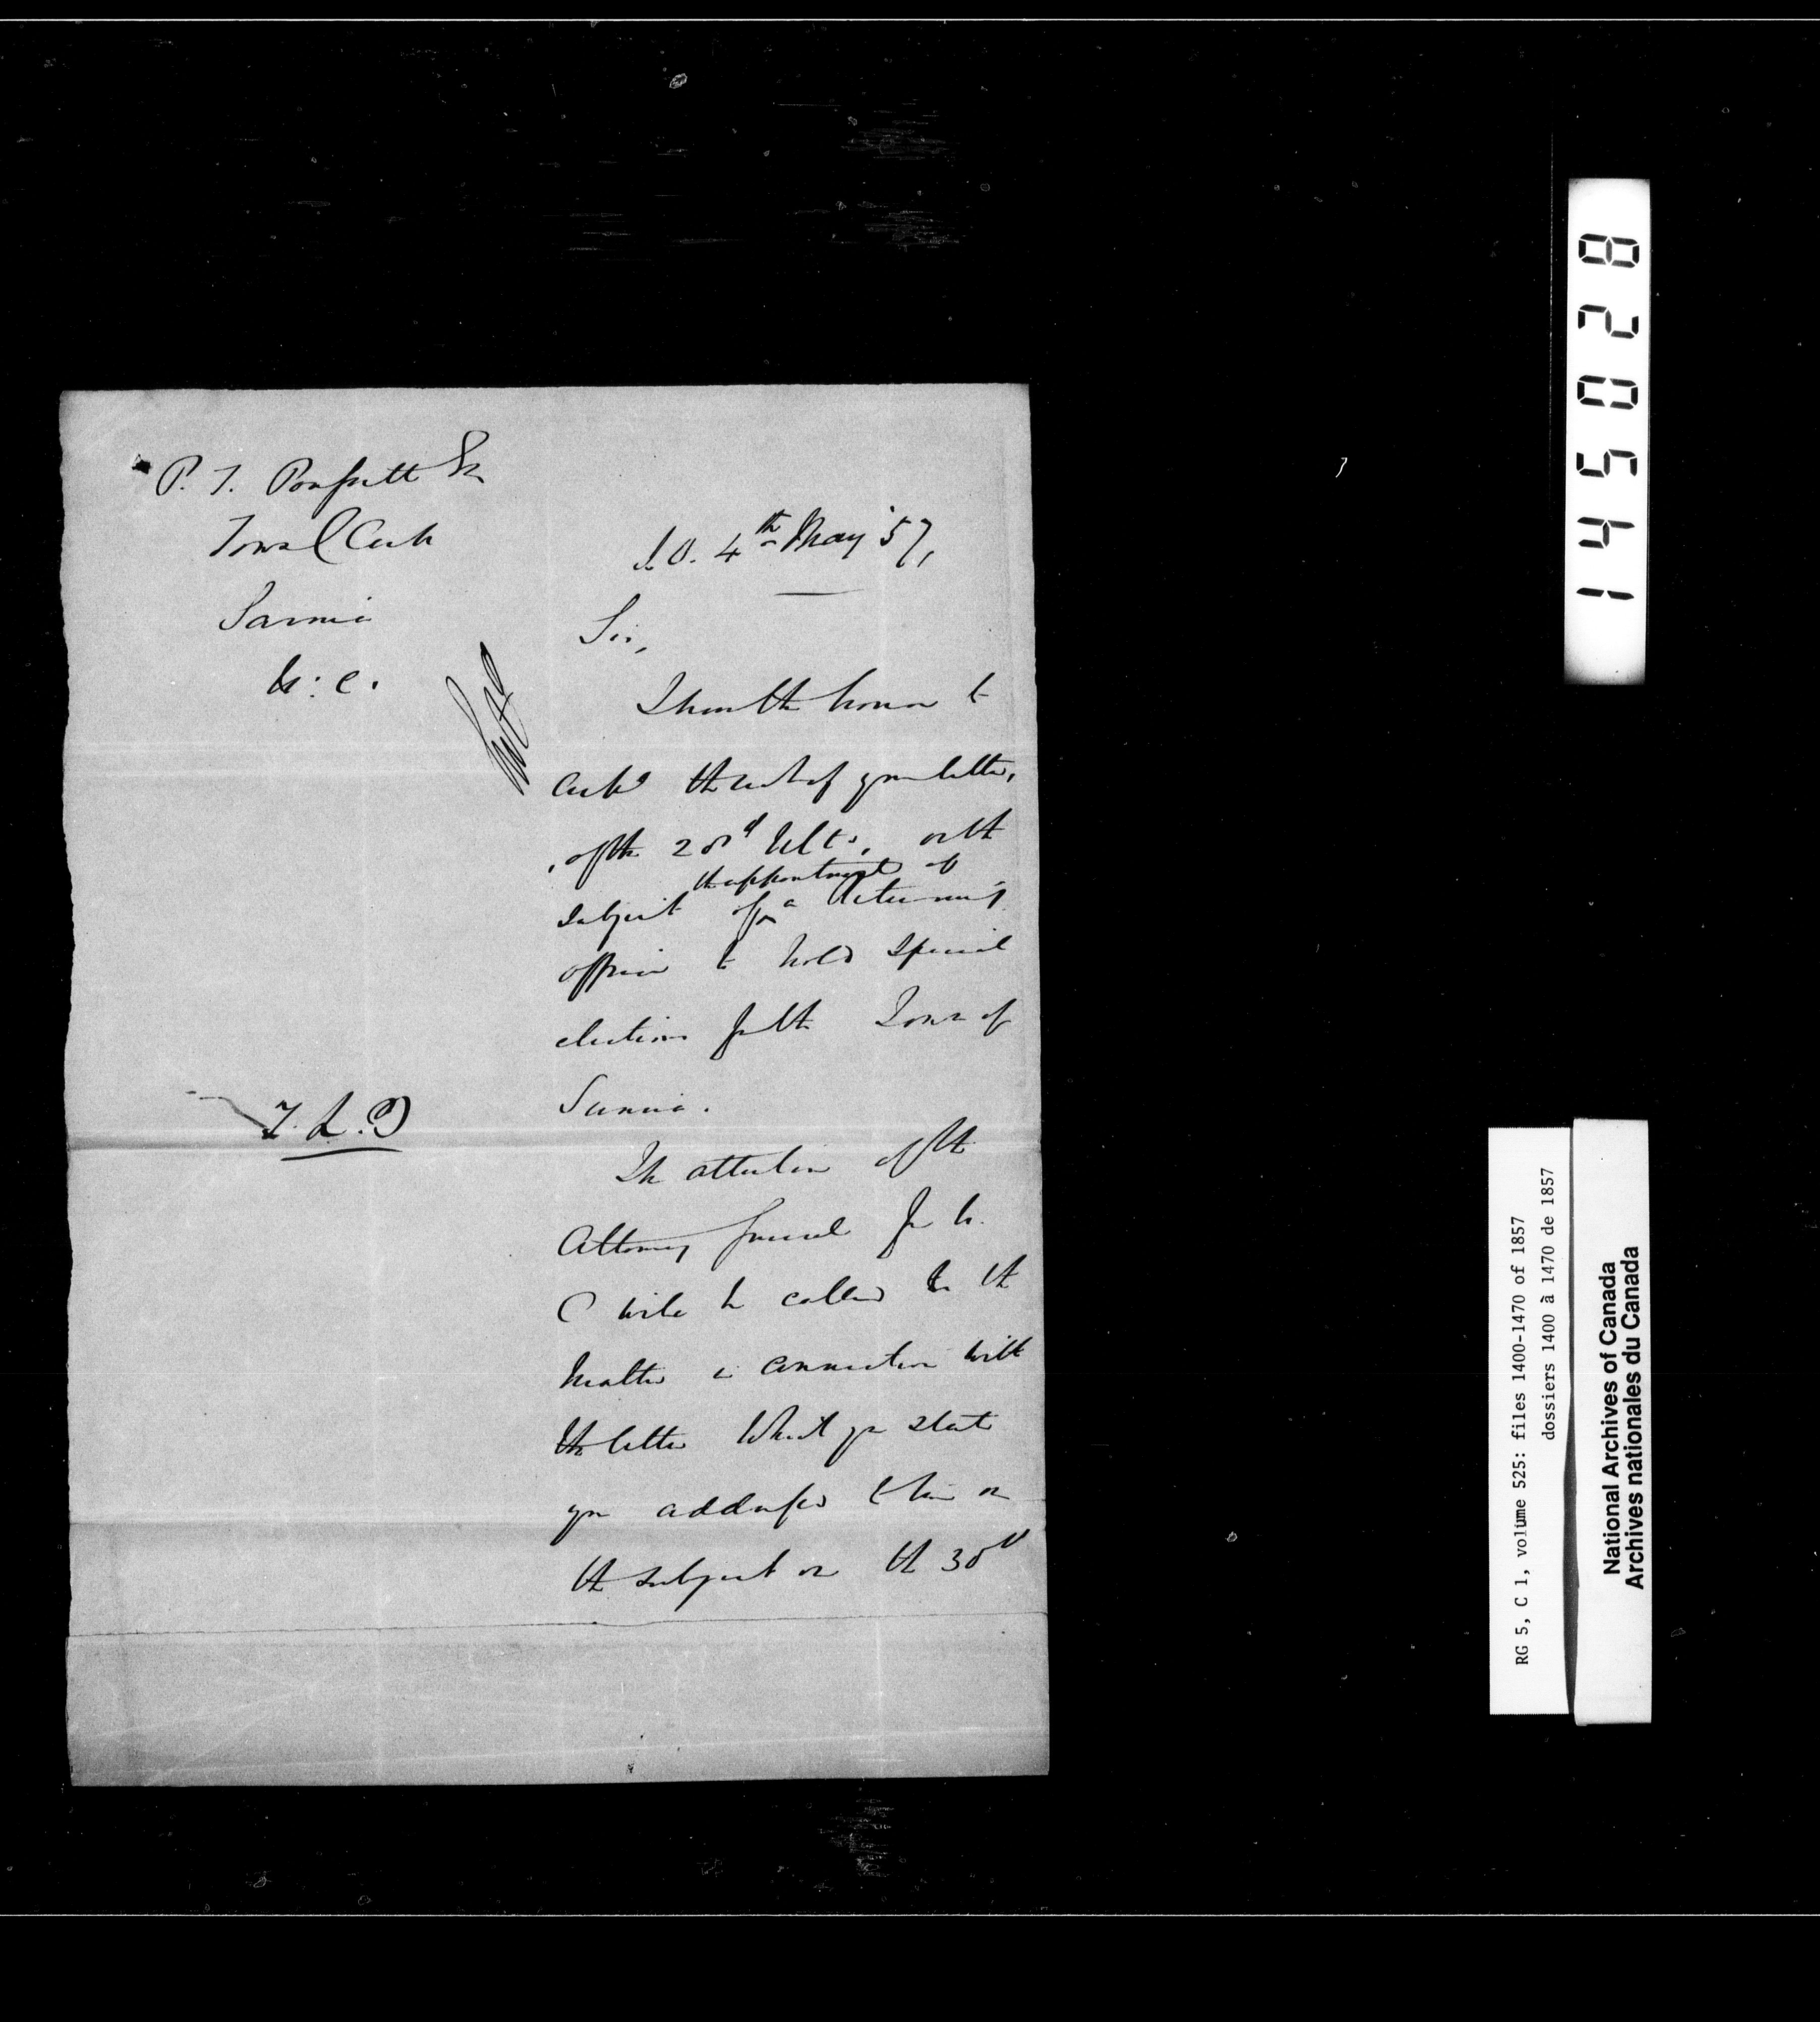 P. T. Poussett Esq
Town Clerk
Sarnia
U: C.
S. O. 4th May '57,
Sir,
I have the honor to
acke the rect of your letter,
of the 28d Ulto, on the
subject of the appointment of a Returning
officer to hold special
elections for the Town of
Sarnia.
T. L. T
The attention of the
Attorney General for U.
C will be called to the
matter in connection with
the letter which you state
you addressed to him on
the subject on the 30th
145028
RG 5, C 1, volume 525: files 1400-1470 of 1857
dossiers 1400 à 1470 de 1857
National Archives of Canada
Archives nationales du Canada